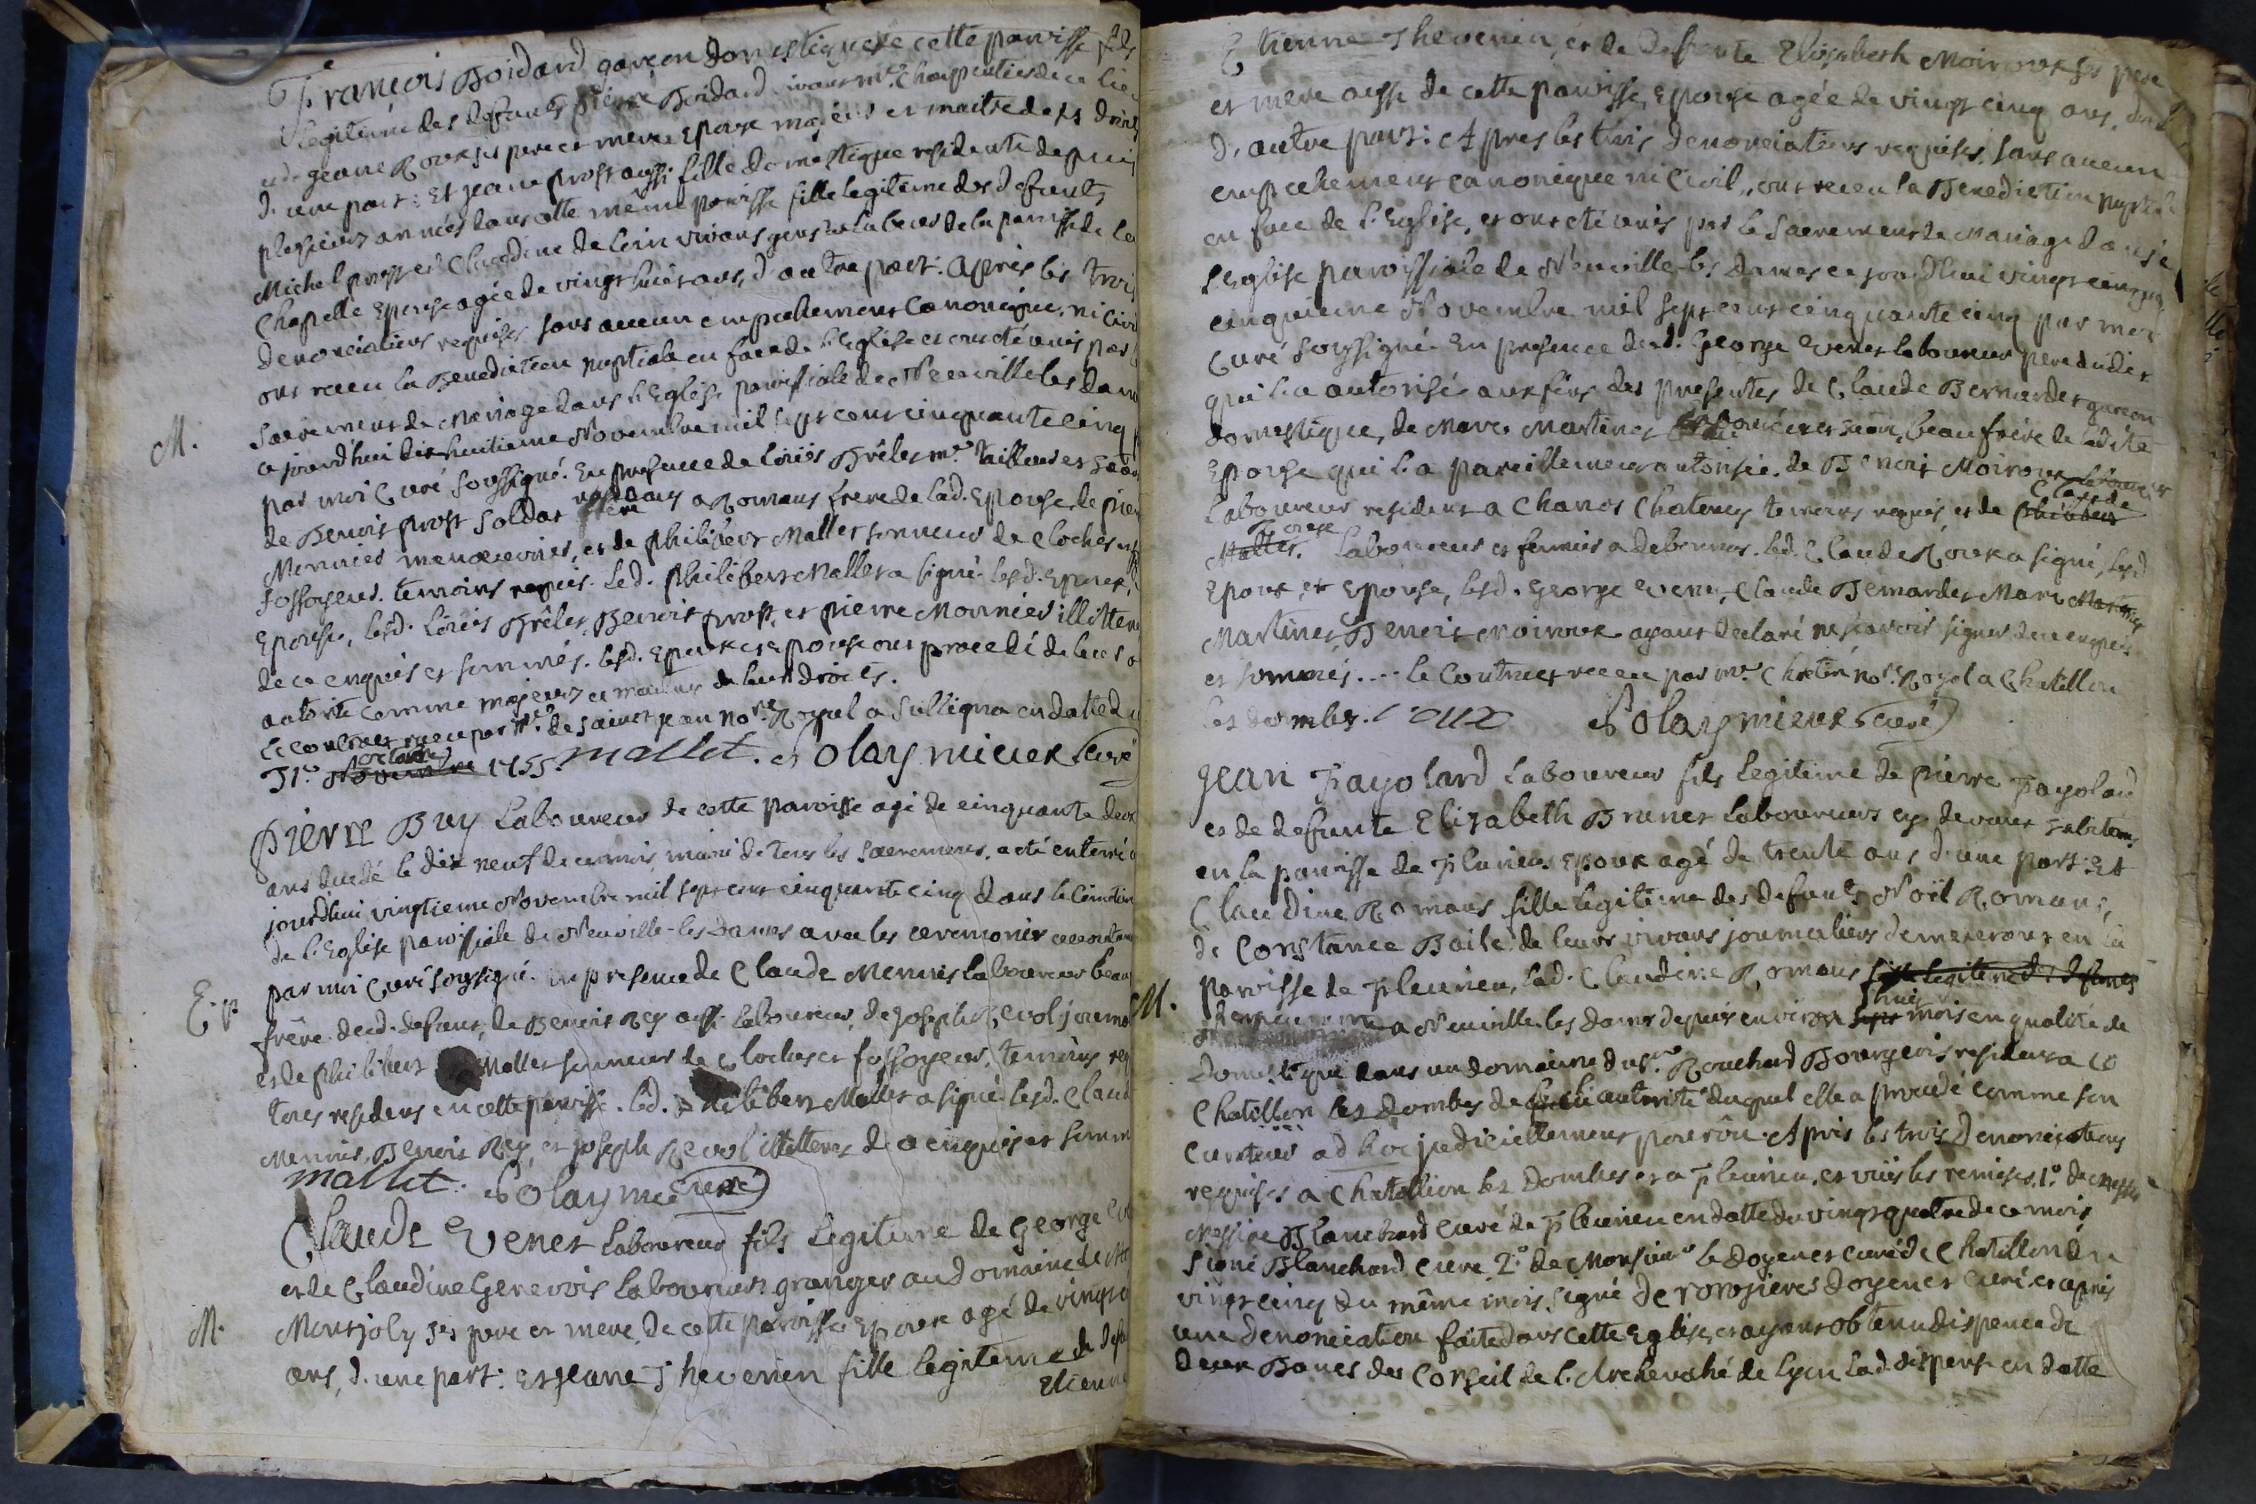 François Boidard garçon domestique de cette paroisse fils
Legitime des defunts pierre Boidard vivant me. Charpentier de ce lieu
et de jeanne Roux ses pere et mere Epoux majeur et maitre de ses droits
d'une part: Et jeanne prost aussi fille domestique residente depuis
plusieurs années dans cette même paroisse fille legitime des defunts
Michel prost et Claudine de loin vivans gens de la paroisse de la
Chapelle Epouse agée de vingt huit ans, d'autre part. Apres les trois
denonciations requises sans aucun empechement canonique, ni civil
ont receu la Benediction nuptiale en face de l'Eglise et ont été unis par le
M.
Sacrement de Mariage dans l'Eglise paroissiale de Neuville les dames
ce jourd'hui dix huitieme Novembre mil sept cent cinquante cinq
par moi Curé soussigné. En presence de loüis Brêlet me. Tailleur
de Benoit prost soldat a Romans frere de lad. Epouse, de pierre
Monnier manoeuvrier, et de philibert Mallet sonneur de Cloches et
fossoyeur. temoins requis. led. philibert Mallet a signé. lesd. Epoux,
Epouse, lesd. loüis Brêlet, Benoit prost, et pierre Monnier illitterés
de ce enquis et sommés. lesd. Epoux et epouse ont procedé de leurs
autorité comme majeurs et maitres de leurs droits.
Le contract receu par me. de saint jean nore. Royal a Sulligna en datte du
31e octobre 1755. mallet. Solaymieux Curé
pierre Buy Laboureur de cette paroisse agé de cinquante deux
ans decedé le dix neuf de ce mois, muni de tous les sacremens. a été enterré
jourd'hui vingtieme Novembre mil sept cent cinquante cinq dans le Cimetiere
de l'Eglise paroissiale de Neuville-les Dames avec les ceremonies accoutumées
E.p.
par moi Curé soussigné. en presence de Claude Mennis laboureur beau
frêre dud. defunt, de Benoit Rey aussi laboureur, de joseph Revol journalier
et de philibert Mallet sonneur de Cloches et fossoyeur, temoins requis
tous residens en cette paroisse. led. philibert Mallet a signé. lesd. Claude
Mennis, Benoit Rey, et joseph Revol illitterés de ce enquis et sommés
mallet. Solaymieux Curé
Claude Evenet Laboureur fils Legitime de George Evenet
et de Claudine Genevois Laboureurs grangers au domaine de
M.
Montjoly ses pere et mere de cette paroisse Epoux agé de vingt
ans, d'une part: Et jeanne Thevenin fille legitime de defunt
Etienne
Etienne Thevenin et de defunte Elisabeth Moiroux ses pere
et mere aussi de cette paroisse, Epouse agée de vingt cinq ans,
d'autre part: Apres les trois denonciations requises, sans aucun
empechement canonique ni Civil, ont receu la Benediction nuptiale
en face de l'Eglise, et ont été unis par le Sacrement de Mariage dans
l'Eglise paroissiale de Neuville-les dames ce jourd'hui vingt cinq
cinquieme Novembre mil sept cent cinquante cinq par moi
Curé Soussigné. En presence dud. George Evenet laboureur pere dudit
qui l'a autorisé aux fins des presentes, de Claude Bernardet garçon
domestique, de Marc Martinet beau frere de ladite
Epouse qui l'a pareillement autorisée. de Benoit Moiroux Laboureur
Laboureur resident a Chanos Chatenay temoins requis, et de philibert Claude
Mallet. Laboureur et fermier a . led. Claude Roux a signé, lesd.
Epoux, et Epouse, lesd. George Evenet, Claude Bernardet Marc
Martinet Benoit moiroux ayant declaré ne sçavoir signer de ce enquis
et sommés.... le Contract receu par me. Chretin nore. Royal a Chatillon
les dombes. roux Solaymieux Curé
Jean Fayolard Laboureur fils Legitime de pierre Fayolard
et de defunte Elizabeth Brunet Laboureurs cy devant habitans
en la paroisse de Fleurieu. Epoux agé de trente ans d'une part: Et
Claudine Romans fille legitime des defunts Noël Romans,
de Constance Baile, de leurs vivans journaliers demeurans en la
M.
paroisse de Fleurieu, lad. Claudine Romans fille legitime des defunts
a Neuville les dames depuis environ sept huit mois en qualité de
Domestique dans un domaine du sr. Rouchard Bourgeois resident a
Chatillon les dombes de l'autorité duquel elle a procedé comme son
Curateur ad hoc judiciellement pourvû. Apres les trois denonciations
requises a Chatillon les Dombes et a Fleurieu, et vuës les remises, 1°. de
Messire Blanchard Curé de Fleurieu en datte du vingt quatre de ce mois
signé Blanchard, Curé, 2°. de Monsieur le Doyen et curé de Chatillon du
vingt cinq du même mois, signé de Doyen et Curé. et apres
une denonciation faite dans cette Eglise, et ayans obtenu dispence de
deux Bancs des Conseil de l'Archevêché de Lyon lad. dispense en datte